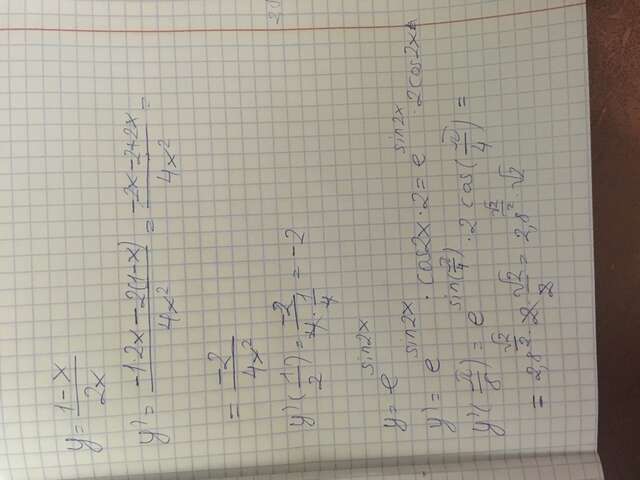 y = (1-x)/(2x)
y' = (-1·2x - 2(1-x))/(4x²) = (-2x-2+2x)/(4x²) =
= (-2)/(4x²)
y'(1/2) = (-2)/(4·1/4) = -2
y = e^(sin2x)
y' = e^(sin2x) · cos2x · 2 = e^(sin2x) · 2cos2x
y'(π/8) = e^(sin(π/4)) · 2 cos(π/4) =
= 2,8^(√2/2) · 2 √2/2 = 2,8^(√2/2) · √2